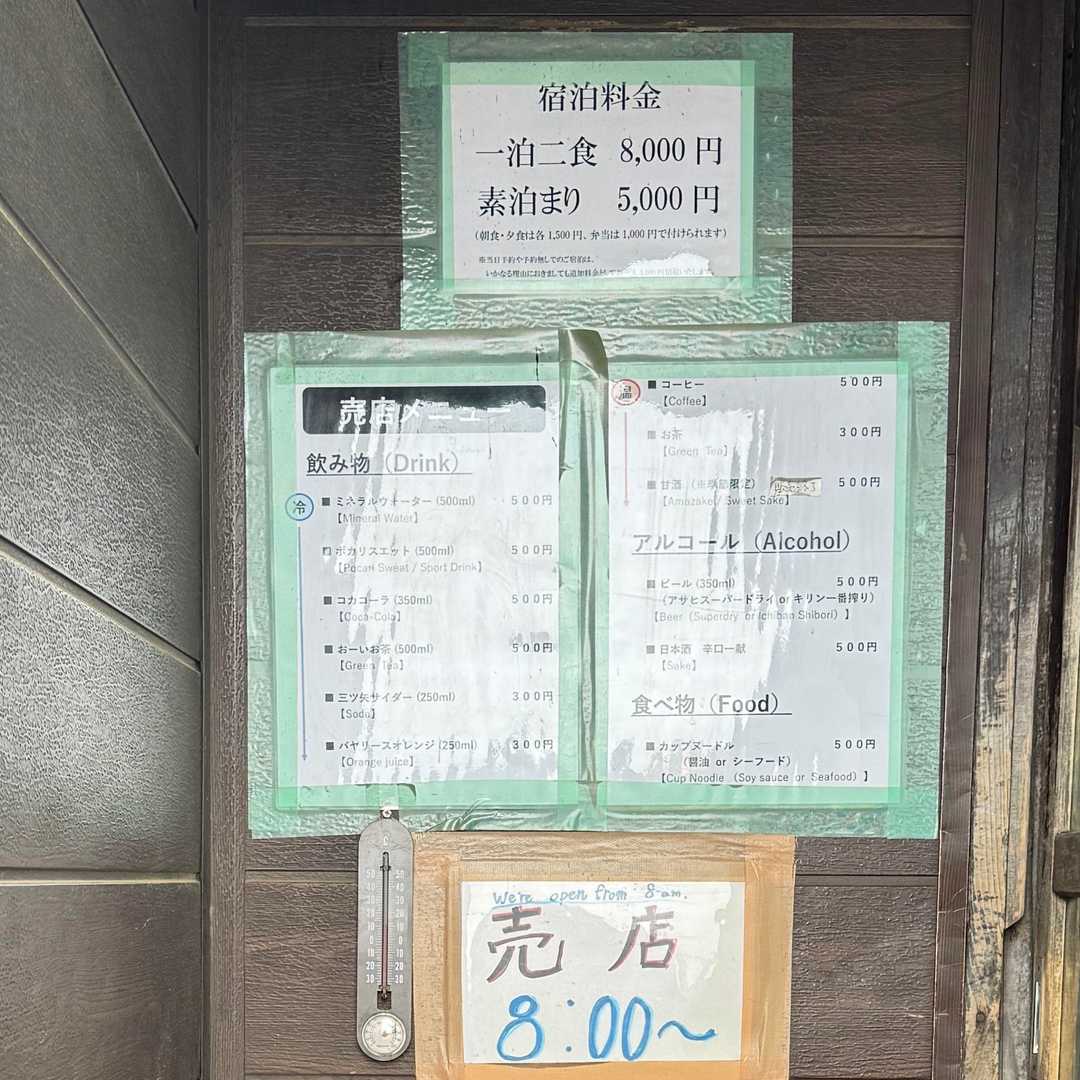 宿泊料金
一泊二食 8,000 円
素泊まり 5,000 円
(朝食・夕食は各 1,500 円、弁当は 1,000 円で付けられます)
※当日予約や予約無しでのご宿泊は、
いかなる理由におきましても追加料金
売店メニュー
飲み物（Drink）
冷
■ ミネラルウォーター (500ml) 500円
【Mineral Water】
■ ポカリスエット (500ml) 500円
【Pocari Sweat / Sport Drink】
■ コカコーラ (350ml) 500円
【Coca-Cola】
■ おーいお茶 (500ml) 500円
【Green Tea】
■ 三ツ矢サイダー (250ml) 300円
【Soda】
■ バヤリースオレンジ (250ml) 300円
【Orange juice】
温
■ コーヒー 500円
【Coffee】
■ お茶 300円
【Green Tea】
■ 甘酒 （※季節限定） 500円
【Amazake / Sweet Sake】
アルコール（Alcohol）
■ ビール (350ml) 500円
（アサヒスーパードライ or キリン一番搾り）
【Beer（Superdry or Ichiban Shibori）】
■ 日本酒 辛口一献 500円
【Sake】
食べ物（Food）
■ カップヌードル 500円
（醤油 or シーフード）
【Cup Noodle （Soy sauce or Seafood）】
C
50 50
40 40
30 30
20 20
10 10
0 0
10 10
20 20
30 30
We're open from 8 am.
売店
8:00〜